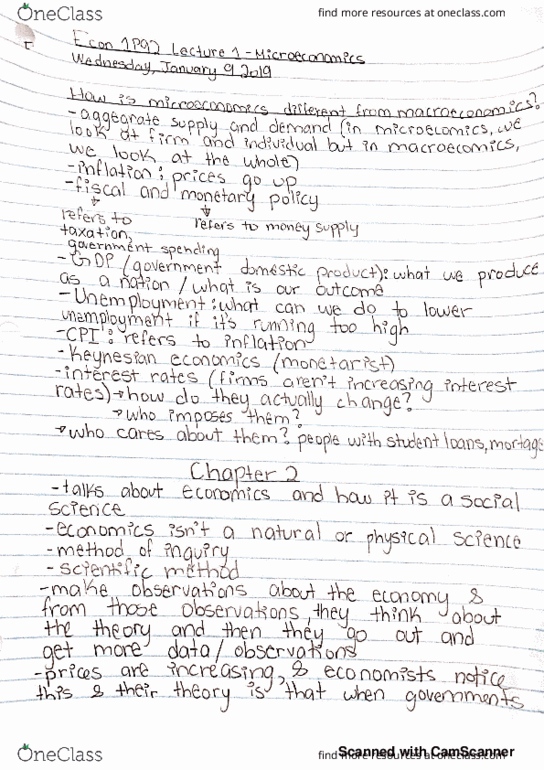 OneClass
find more resources at oneclass.com
Econ 1P92 Lecture 1 - Microeconomics
Wednesday, January 9 2019
How is microeconomics different from macroeconomics?
- aggegrate supply and demand (in microecomics, we
look at firm and individual but in macroecomics,
we look at the whole)
- inflation: prices go up
- fiscal and monetary policy
refers to
refers to money supply
taxation,
government spending
- GDP (government domestic product): what we produce
as a nation / what is our outcome
- Unemployment: what can we do to lower
unemployment if it's running too high
- CPI: refers to inflation
- Keynesian economics (monetarist)
- interest rates (firms aren't increasing interest
rates) → how do they actually change?
→ who imposes them?
→ who cares about them? people with student loans, mortage
Chapter 2
- talks about economics and how it is a social
science
- economics isn't a natural or physical science
- method of inquiry
- scientific method
- make observations about the economy &
from those observations, they think about
the theory and then they go out and
get more data/observations
- prices are increasing, & economists notice
this & their theory is that when governments
OneClass
find more resources at oneclass.com
Scanned with CamScanner